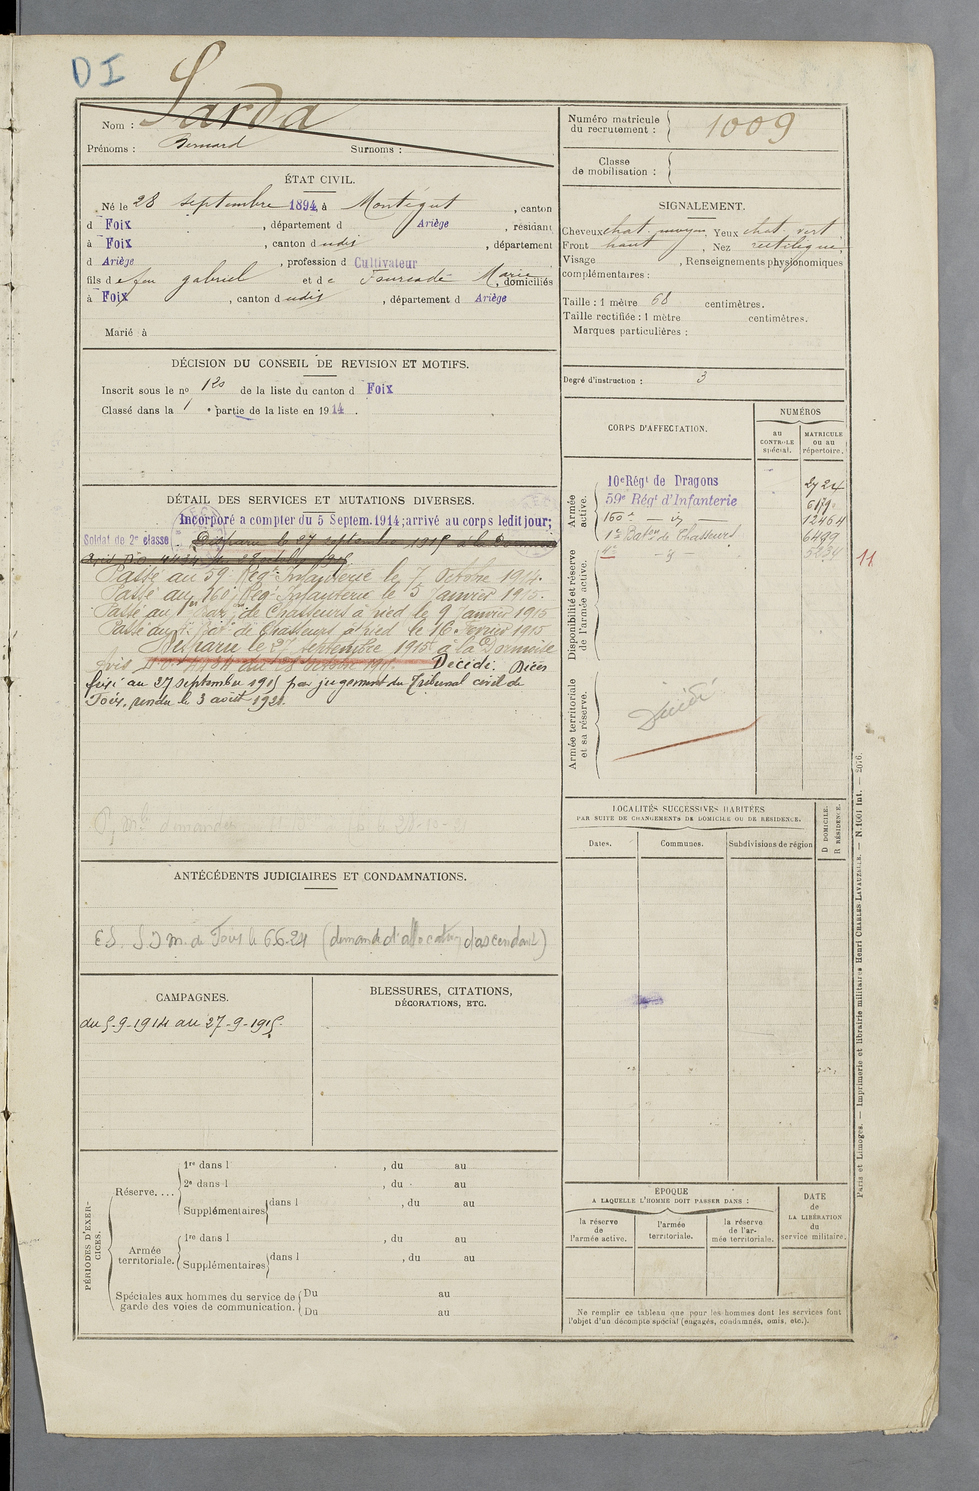 DI
Nom : Sarda
Prénoms : Bernard Surnoms :
Numéro matricule du recrutement : 1009
Classe de mobilisation :
ÉTAT CIVIL.
Né le 28 septembre 1894, à Montégut, canton
d Foix, département d Ariège, résidant
à Foix, canton dudit, département
d Ariège, profession d Cultivateur
fils de feu gabriel et de Fourcade Marie, domiciliés
à Foix, canton dudit, département d Ariège
Marié à
SIGNALEMENT.
Cheveux chat. moyen, Yeux chat. vert
Front haut, Nez rectiligne
Visage , Renseignements physionomiques
complémentaires :
Taille : 1 mètre 68 centimètres.
Taille rectifiée : 1 mètre centimètres.
Marques particulières :
Degré d'instruction : 3
DÉCISION DU CONSEIL DE REVISION ET MOTIFS.
Inscrit sous le no 120 de la liste du canton d Foix
Classé dans la 1 e partie de la liste en 1914.
DÉTAIL DES SERVICES ET MUTATIONS DIVERSES.
Incorporé à compter du 5 Septem. 1914; arrivé au corps ledit jour;
Soldat de 2e classe Disparu le 27 septembre 1915 à la Dormoise
Passé au 59e Rég. Infanterie le 7 Octobre 1914.
Passé au 160e Rég. Infanterie le 5 Janvier 1915.
Passé au 1er Bat. de Chasseurs à pied le 9 Janvier 1915
Passé au Bat. de Chasseurs à pied le 16 Février 1915
Disparu le 27 septembre 1915 à la Dormoise
Avis du 28 Octobre 1915. Décédé. Décès
fixé au 27 septembre 1915 par jugement du Tribunal civil de
Foix, rendu le 3 août 1921.
CORPS D'AFFECTATION.
NUMÉROS
au CONTROLE spécial.
MATRICULE ou au répertoire.
Armée active.
10e Régt de Dragons 2724
59e Régt d'Infanterie
160e — id — 12464
1er Baton de Chasseurs 6499
11
Disponibilité et réserve de l'armée active.
Armée territoriale et sa réserve.
Décédé
LOCALITÉS SUCCESSIVES HABITÉES
PAR SUITE DE CHANGEMENTS DE DOMICILE OU DE RÉSIDENCE.
Dates. Communes. Subdivisions de région
D DOMICILE.
R RÉSIDENCE.
ANTÉCÉDENTS JUDICIAIRES ET CONDAMNATIONS.
E.S. S.I.M. de Foix le 6.6.24 (demande d'allocation d'ascendant)
CAMPAGNES.
du 5-9-1914 au 27-9-1915.
BLESSURES, CITATIONS,
DÉCORATIONS, ETC.
PÉRIODES D'EXERCICES.
Réserve....
1re dans l , du au
2e dans l , du au
Supplémentaires dans l , du au
Armée territoriale.
1re dans l , du au
Supplémentaires dans l , du au
Spéciales aux hommes du service de garde des voies de communication.
Du au
Du au
ÉPOQUE
A LAQUELLE L'HOMME DOIT PASSER DANS :
la réserve de l'armée active.
l'armée territoriale.
la réserve de l'armée territoriale.
DATE de LA LIBÉRATION du service militaire.
Ne remplir ce tableau que pour les hommes dont les services font
l'objet d'un décompte spécial (engagés, condamnés, omis, etc.).
Paris et Limoges. — Imprimerie et librairie militaires Henri CHARLES-LAVAUZELLE. — N. 1001 int. — 2076.